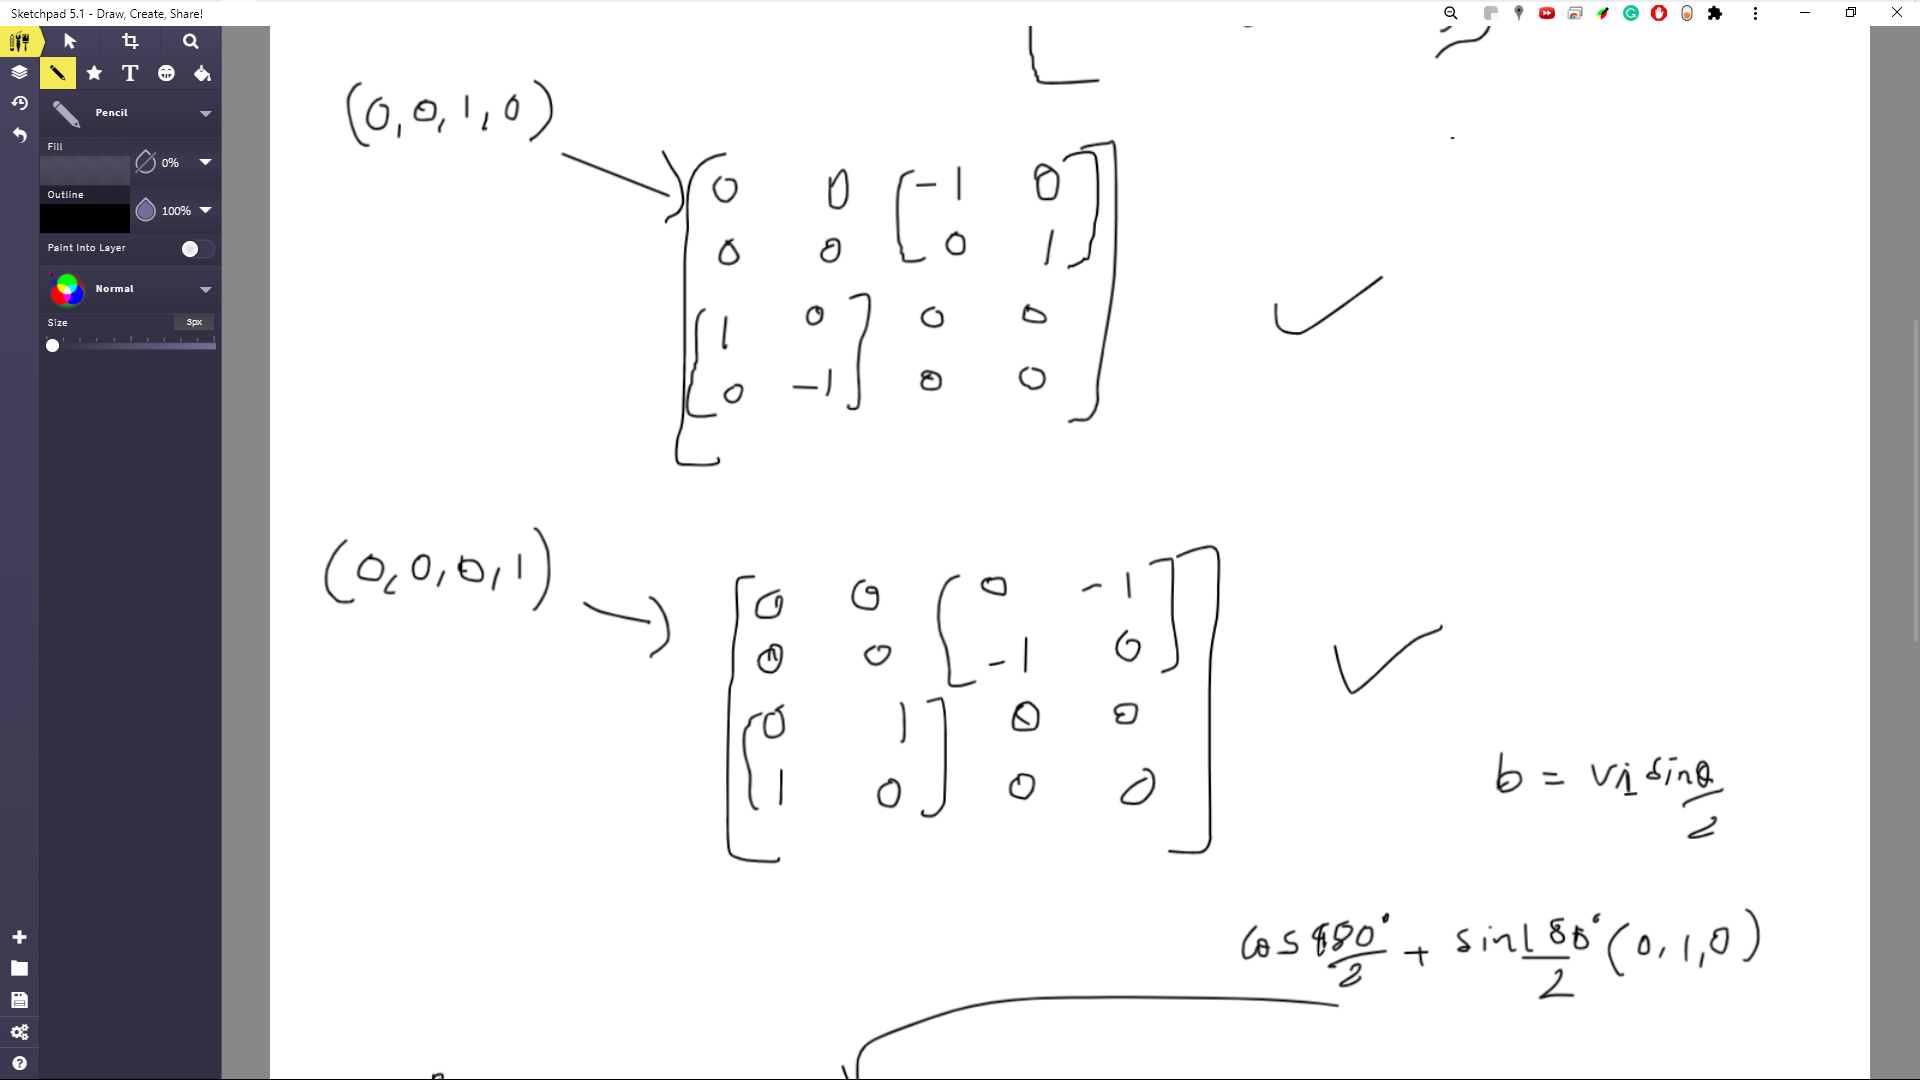 Sketchpad 5.1 - Draw, Create, Share!
Pencil
Fill
0%
Outline
100%
Paint Into Layer
Normal
Size
3px
(0,0,1,0)
0 0 -1 0
0 0 0 1
1 0 0 0
0 -1 0 0
(0,0,0,1)
0 0 0 -1
0 0 -1 0
0 1 0 0
1 0 0 0
b = v1 sin θ/2
cos 180°/2 + sin 180°/2 (0,1,0)